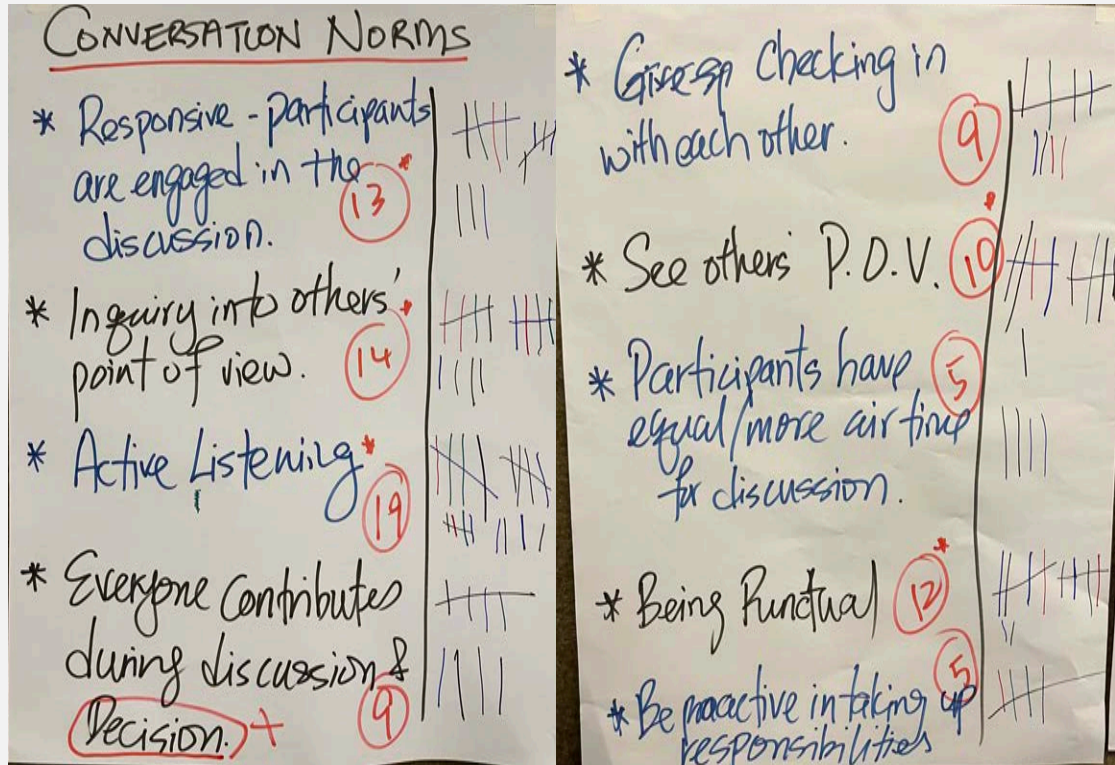 CONVERSATION NORMS
* Responsive - participants
are engaged in the
discussion.
13 *
* Inquiry into others'
point of view.
14 *
* Active Listening *
19
* Everyone Contributes
during discussion &
Decision. +
9
* Checking in
with each other.
9
* See others' P.O.V. 10 *
* Participants have 5
equal/more air time
for discussion.
* Being Punctual 12 *
5
* Be proactive in taking up
responsibilities